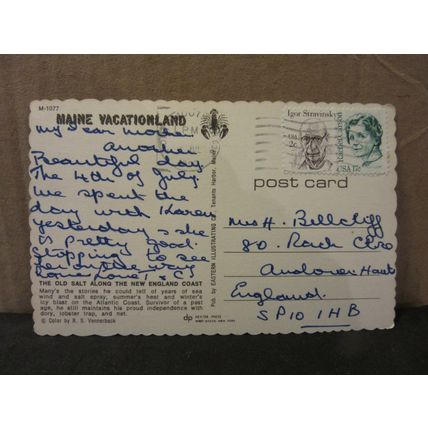 M-1077
MAINE VACATIONLAND
PM
My Dear Mollie
another
Beautiful day
The 4th of July
We spent the
day with Karen
yesterday & she
is Pretty good.
Stopping to see
her on the way
home Love
THE OLD SALT ALONG THE NEW ENGLAND COAST
Many's the stories he could tell of years of sea
wind and salt spray, summer's heat and winter's
icy blast on the Atlantic Coast. Survivor of a past
age, he still maintains his proud independence with
dory, lobster trap, and net.
© Color by R. S. Vennerbeck
Pub. by EASTERN ILLUSTRATING CO., Tenants Harbor, Maine
dp DEXTER PRESS
WEST NYACK, NEW YORK
Igor Stravinsky
USA 2c
Rachel Carson
USA 17c
post card
Mrs H. Bellcliff
80. Rack Close
Andover Hants
England.
SP10 1HB